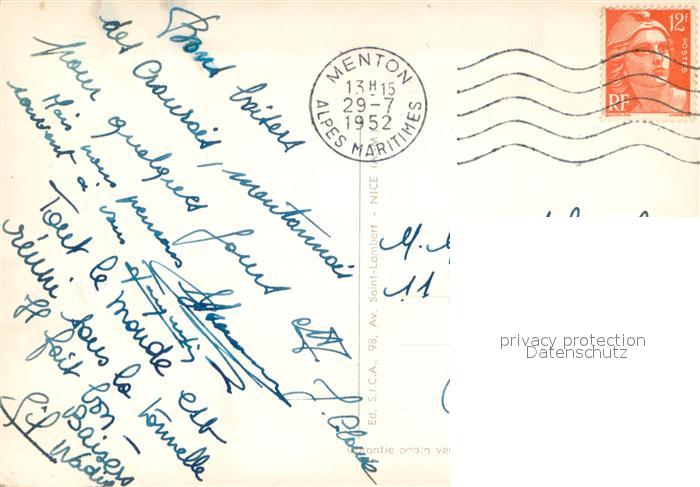 Bons baisers
des
pour quelques jours
Mais nous pensons
souvent à
Tout le monde est
réuni sous la tonnelle
Il fait bon -
Baisers
J. Claude
MENTON
13H15
29-7
1952
ALPES MARITIMES
12F
POSTES
RF
Ed. S.I.C.A., 98, Av. Saint-Lambert - NICE
M. M
11
privacy protection
Datenschutz